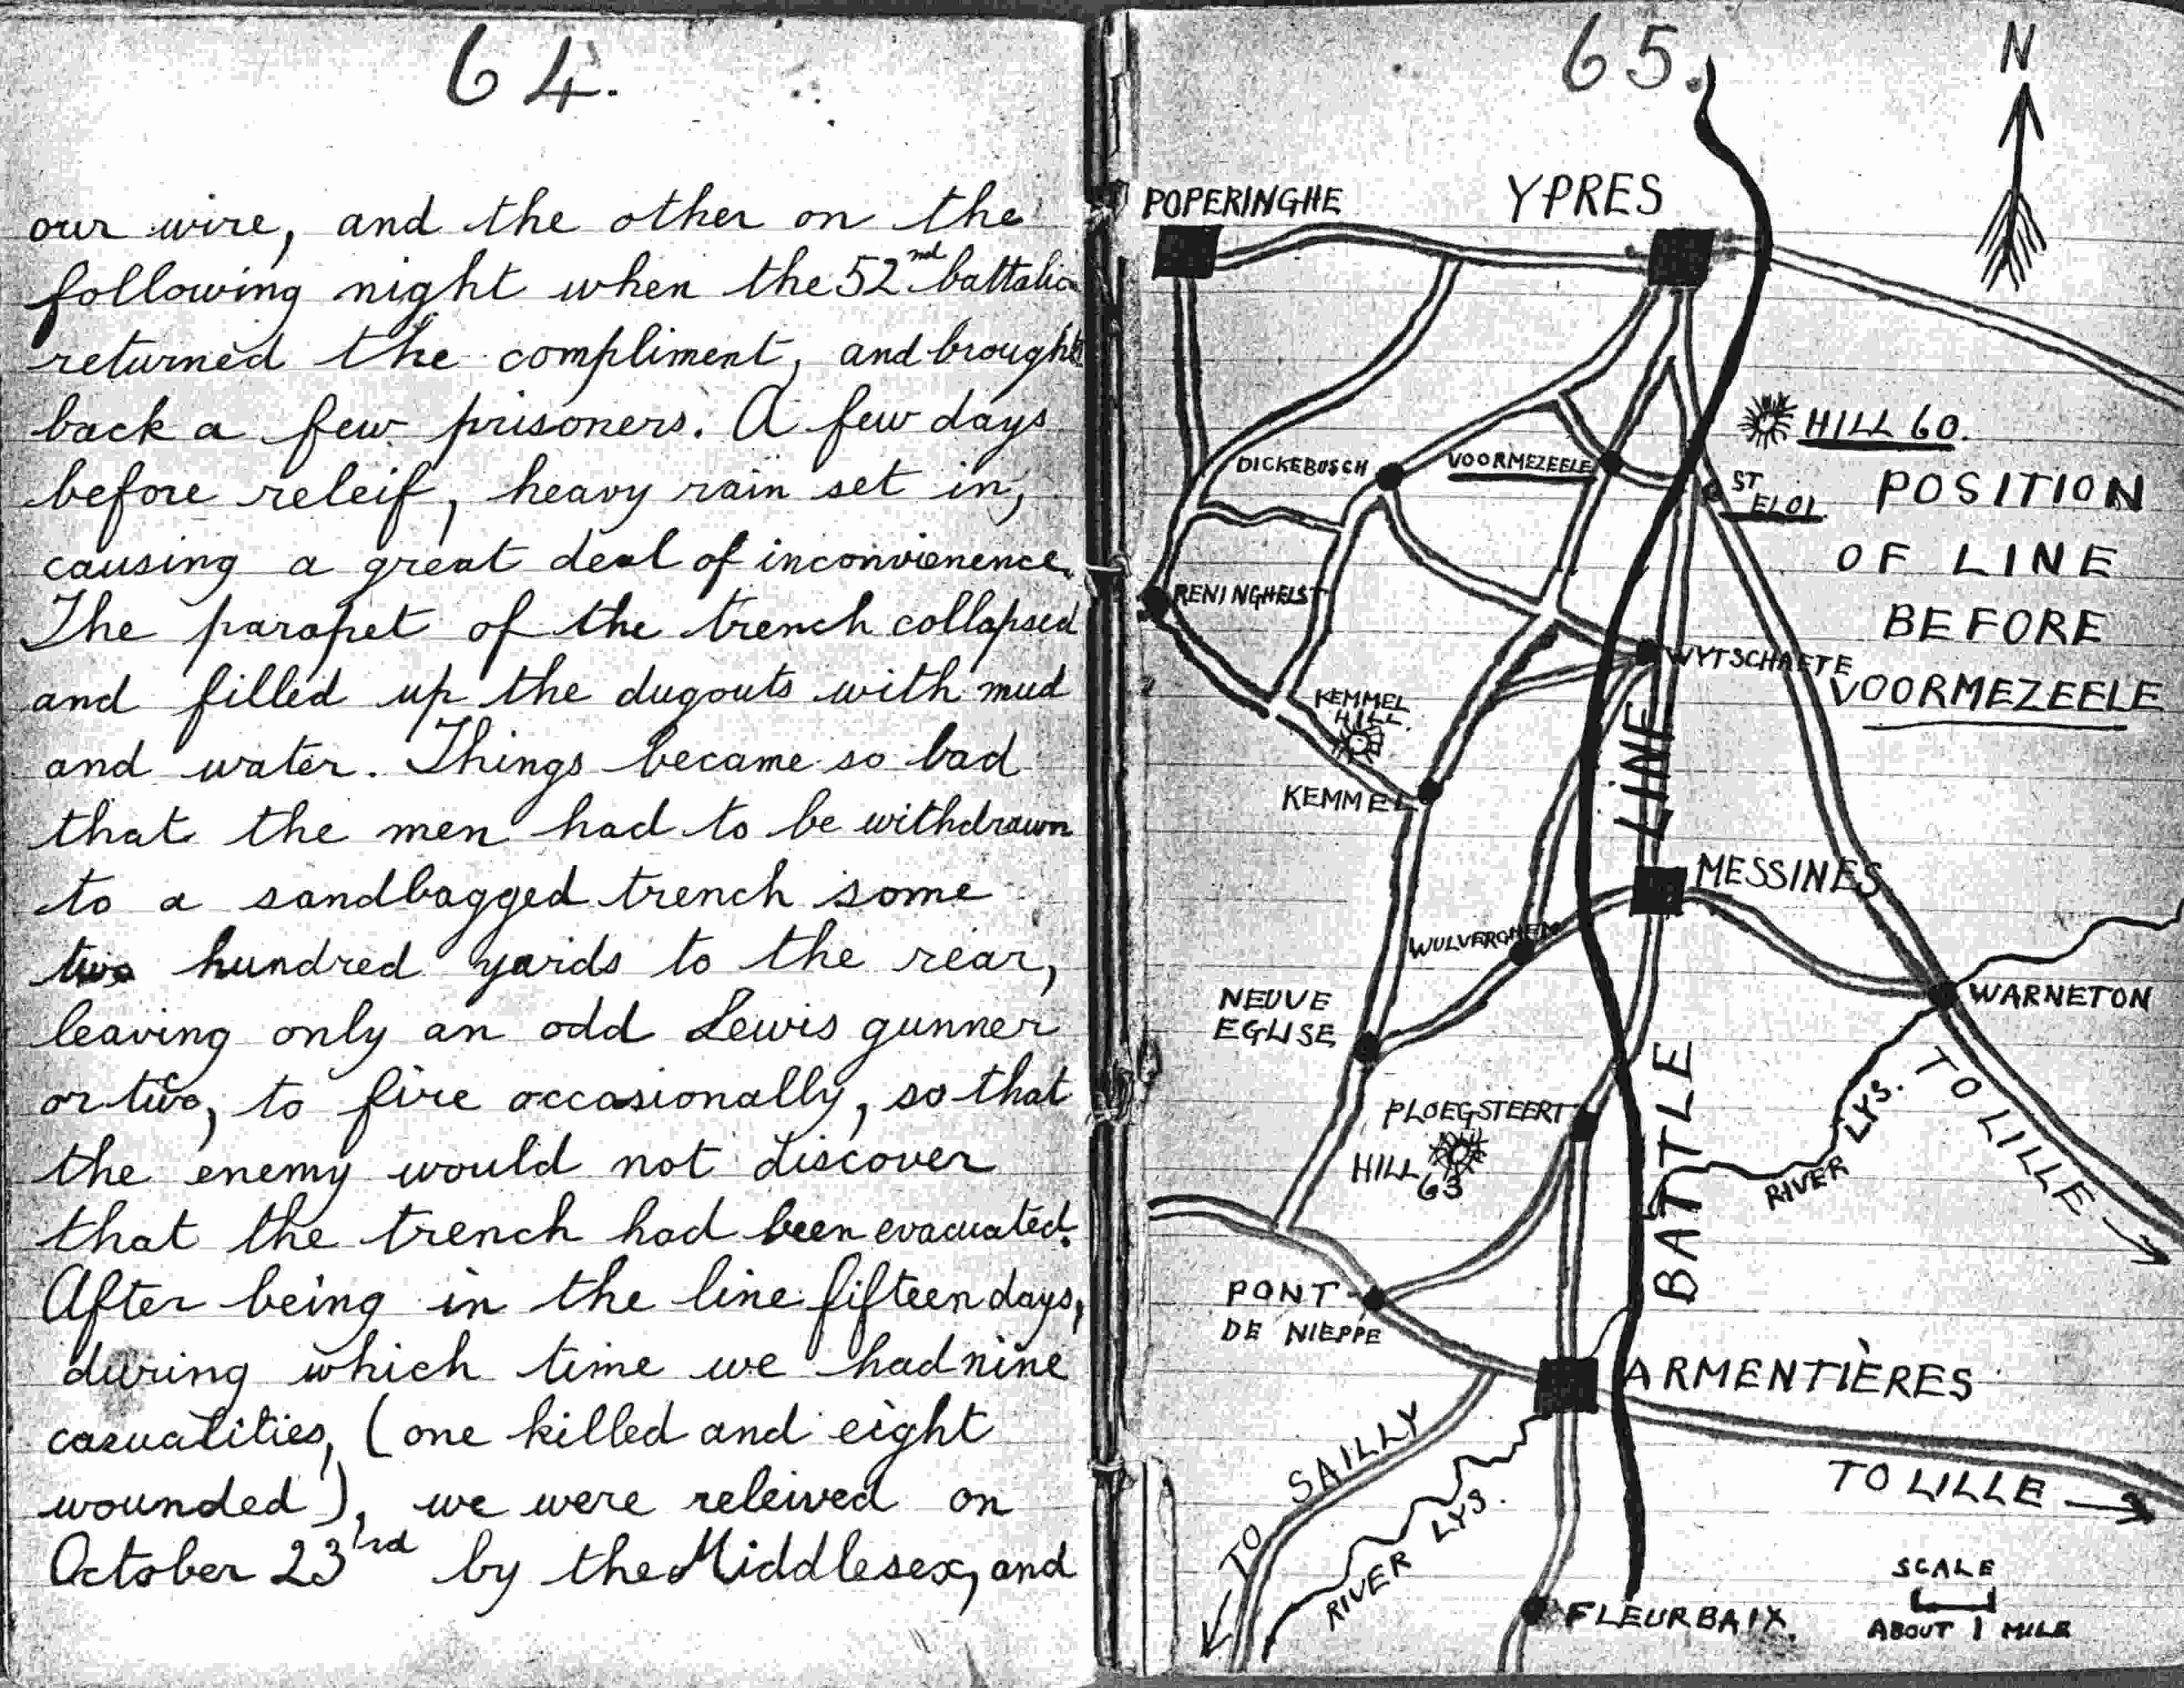 64.
our wire, and the other on the
following night when the 52nd battalion
returned the compliment, and brought
back a few prisoners. A few days
before releif, heavy rain set in,
causing a great deal of inconvienence.
The parapet of the trench collapsed
and filled up the dugouts with mud
and water. Things became so bad
that the men had to be withdrawn
to a sandbagged trench some
two hundred yards to the rear,
leaving only an odd Lewis gunner
or two, to fire occasionally, so that
the enemy would not discover
that the trench had been evacuated.
After being in the line fifteen days,
during which time we had nine
casualities, (one killed and eight
wounded), we were releived on
October 23rd by the Middlesex, and
65.
N
POPERINGHE
YPRES
HILL 60.
DICKEBUSCH
VOORMEZEELE
ST
ELOI.
POSITION
OF LINE
BEFORE
VOORMEZEELE
RENINGHELST
WYTSCHAETE
KEMMEL
HILL.
KEMMEL
LINE
MESSINES
WULVERGHEM
WARNETON
NEUVE
EGLISE
PLOEGSTEERT
HILL
63
BATTLE
RIVER LYS.
TO LILLE
PONT
DE NIEPPE
ARMENTIÈRES
TO SAILLY
TO LILLE
RIVER LYS.
FLEURBAIX.
SCALE
ABOUT 1 MILE